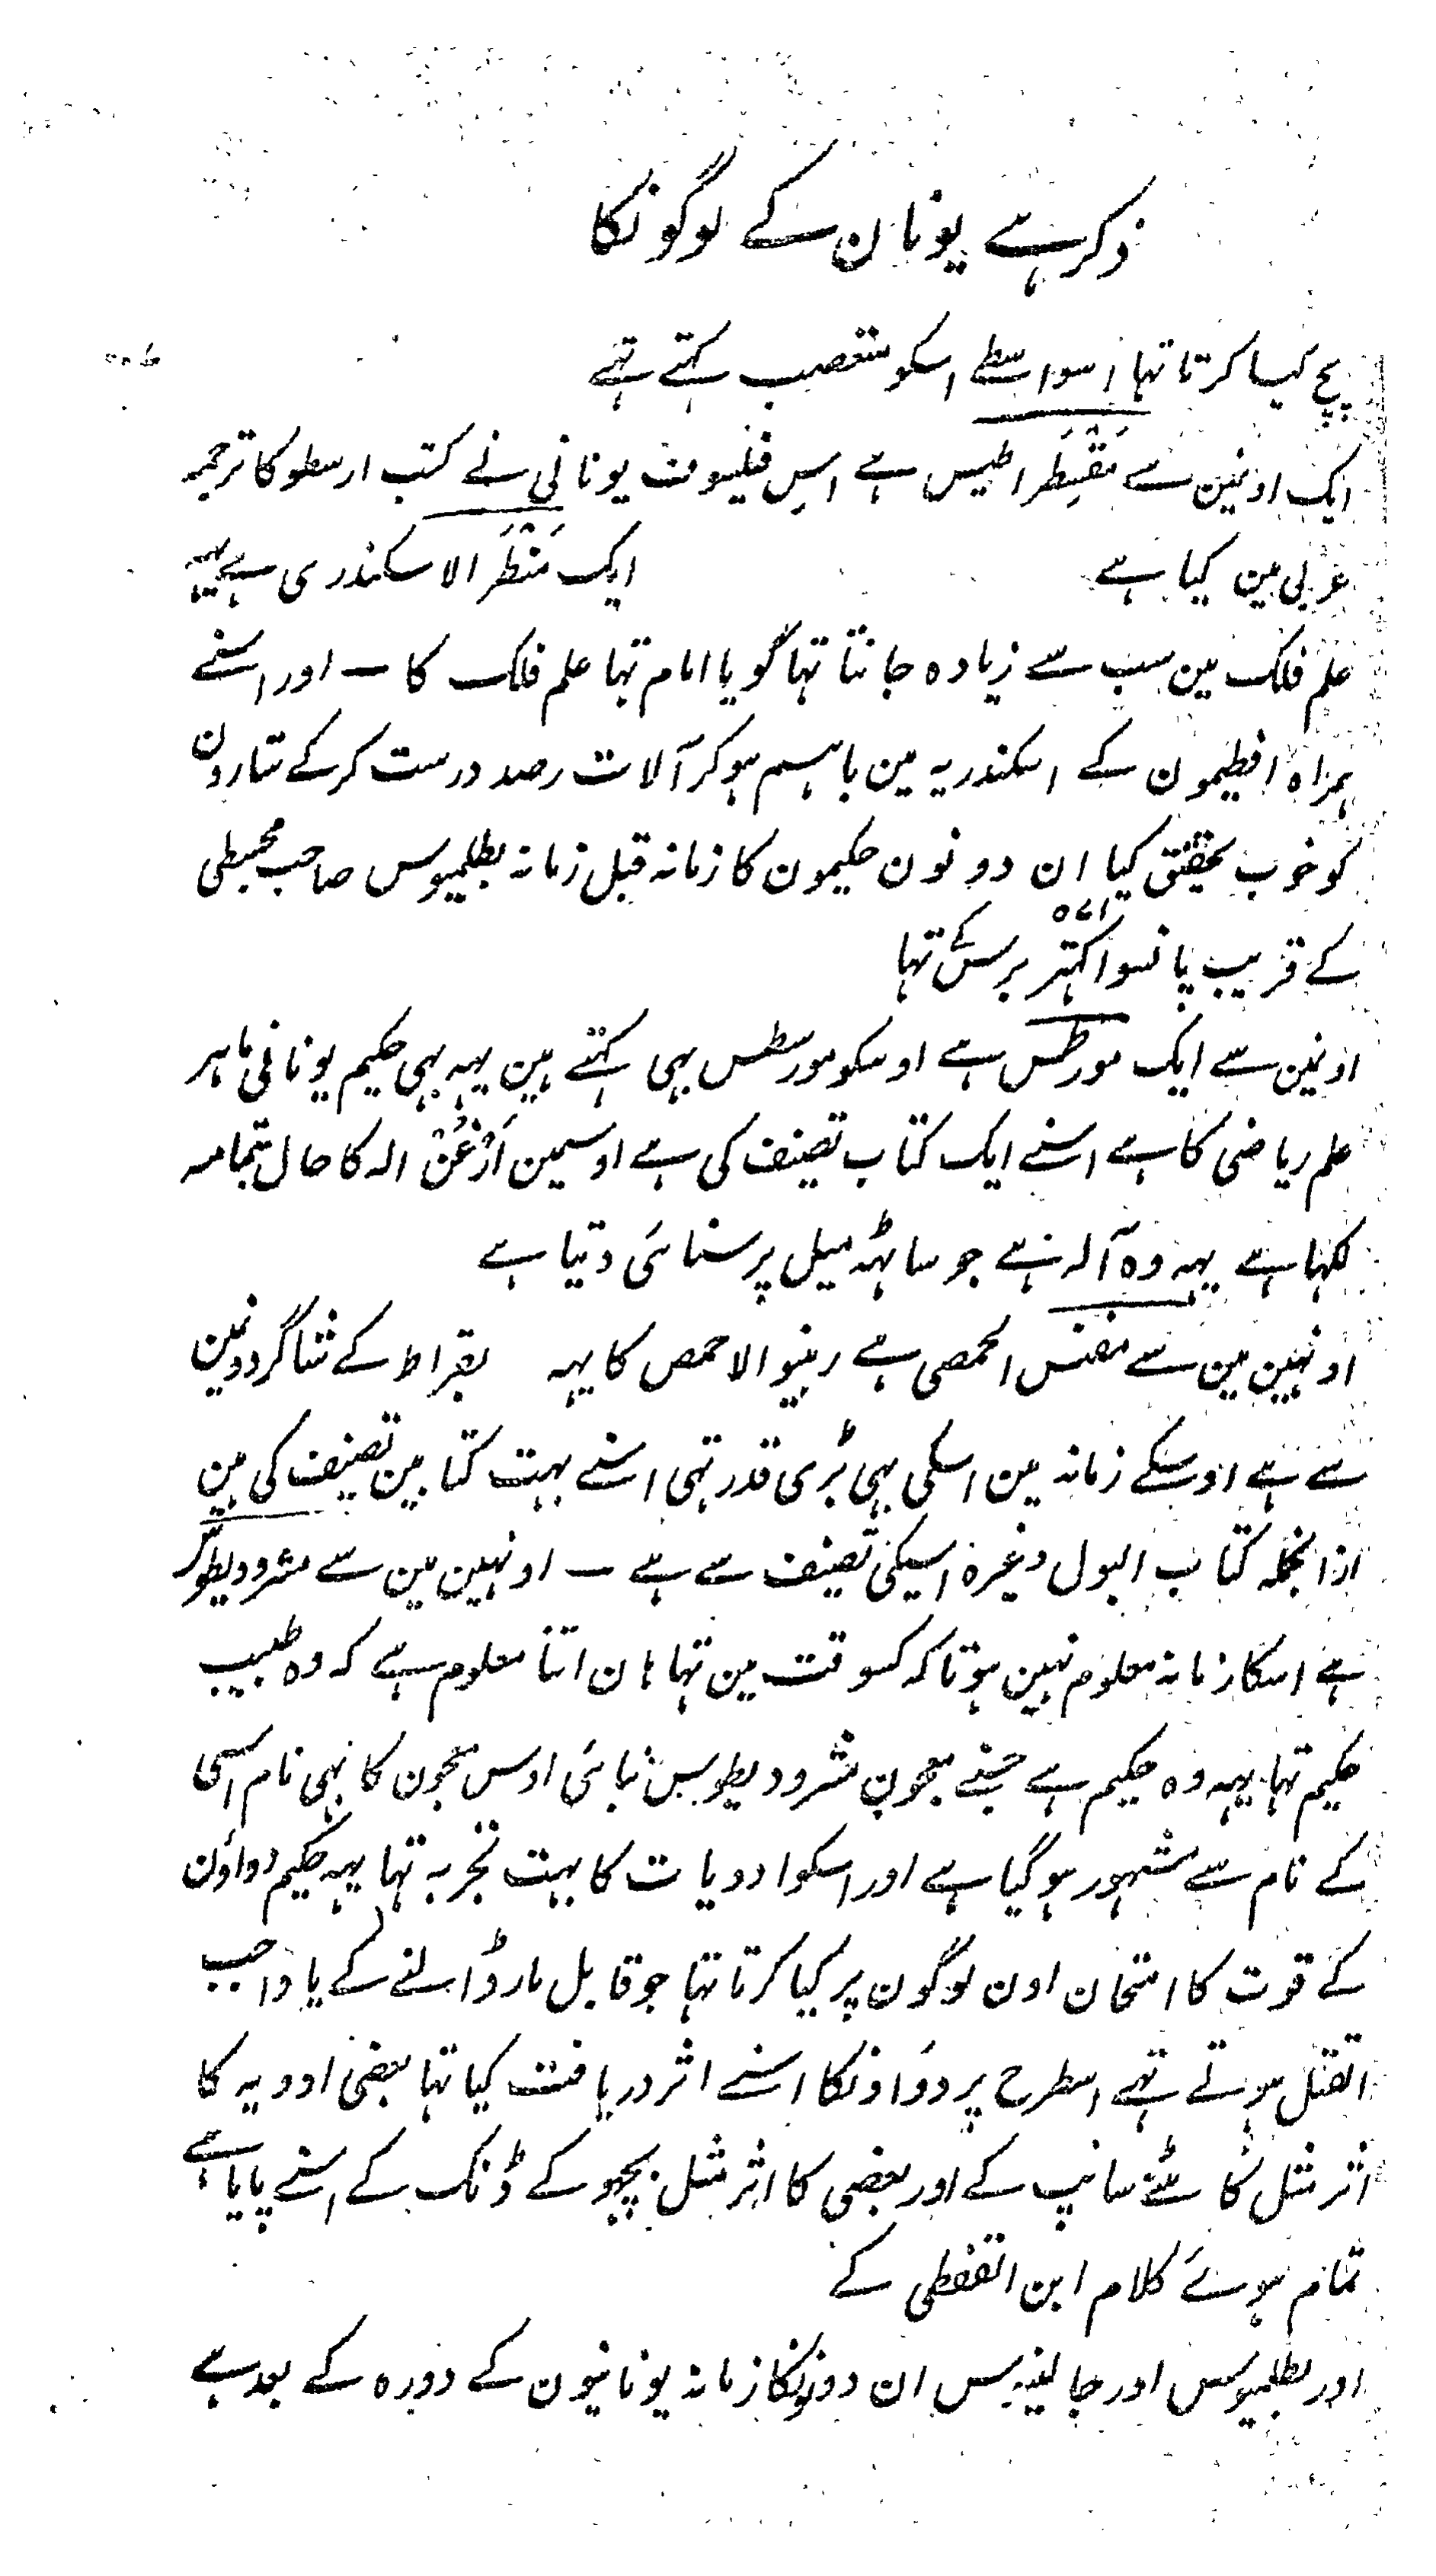 ذکر ہے یونان کے لوگونکا
پچ کیا کرتا تہا اسواسطے اسکو متعصب کہتے تہے
ایک اونین سے مَقْسِطَراطیس ہے اس فیلسوف یونانی نے کتب ارسطو کا ترجمہ
عربی مین کیا ہے ایک مَنْظَر الاسکندری ہے یہہ
علم فلک مین سب سے زیادہ جانتا تہا گویا امام تہا علم فلک کا – اور اسنے
ہمراہ افطیمون کے اسکندریہ مین باہم ہوکر آلات رصد درست کرکے ستارون
کو خوب تحقیق کیا ان دونون حکیمون کا زمانہ قبل زمانہ بطلمیوس صاحب مجسطی
کے قریب پانسو اکہتر ۵۷۱ برس کے تہا
اونین سے ایک مورطس ہے اوسکو مورسطس بہی کہتے ہین یہہ بہی حکیم یونانی ماہر
علم ریاضی کا ہے اسنے ایک کتاب تصنیف کی ہے اوسمین اَرْغُنْ الہ کا حال بتمامہ
لکہا ہے یہہ وہ آلہ ہے جو ساٹہہ میل پر سنائی دیتا ہے
اونہین مین سے مغنس الحمصی ہے رہنیوالا حمص کا یہہ بقراط کے شاگردونمین
سے ہے اوسکے زمانہ مین اسکی بہی بڑی قدر تہی اسنے بہت کتابین تصنیف کی ہین
ازانجملہ کتاب البول وغیرہ اسیکی تصنیف سے ہے – اونہین مین سے مثرودیطوس
ہے اسکا زمانہ معلوم نہین ہوتا کہ کسوقت مین تہا ہان اتنا معلوم ہے کہ وہ طبیب
حکیم تہا یہہ وہ حکیم ہے جسنے معجون مثرودیطوس بنائی اوس معجون کا بہی نام اسی
کے نام سے مشہور ہوگیا ہے اور اسکو ادویات کا بہت تجربہ تہا یہہ حکیم دواؤن
کے قوت کا امتحان اون لوگون پر کیا کرتا تہا جو قابل مار ڈالنے کے یا واجب
القتل ہوتے تہے اسطرح پر دواونکا اسنے اثر دریافت کیا تہا بعضی ادویہ کا
اثر مثل کاٹنے سانپ کے اور بعضی کا اثر مثل بچہو کے ڈنک کے اسنے پایا ہے
تمام ہوئے کلام ابن القفطی کے
اور بطلمیوس اور جالینوس ان دونونکا زمانہ یونانیون کے دورہ کے بعد ہے